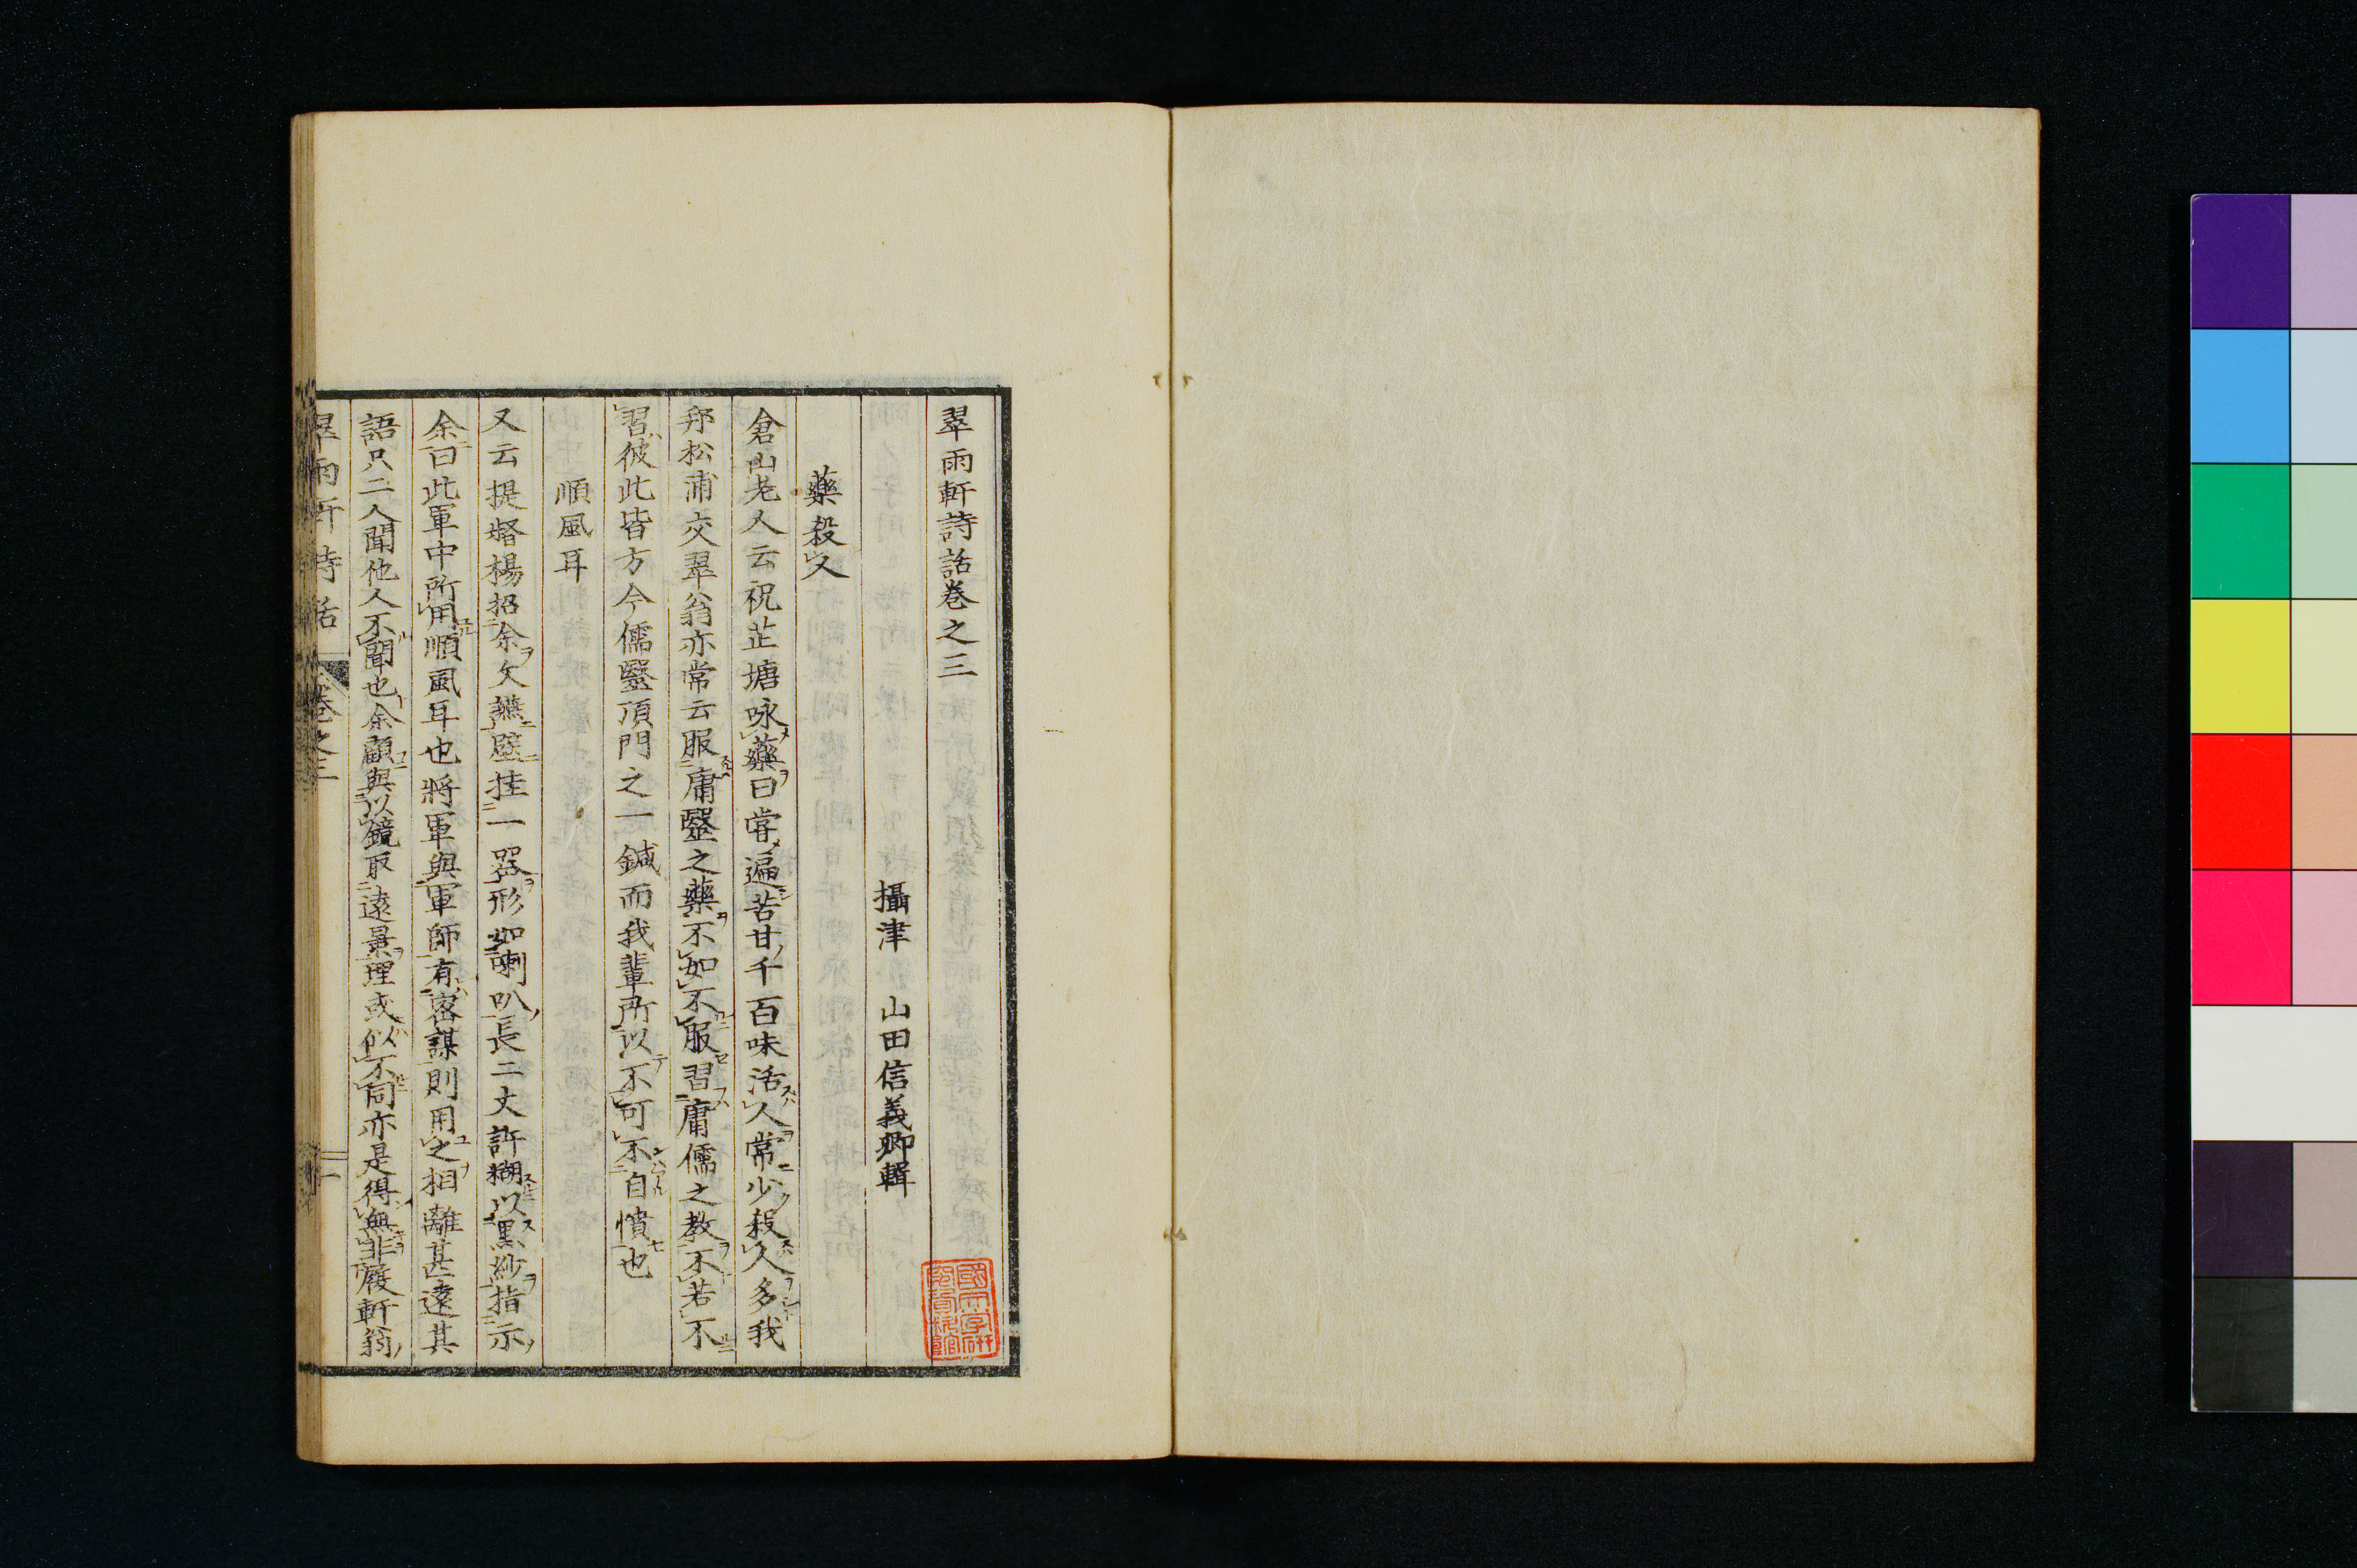 翠雨軒詩話巻之三
攝津　山田信義卿輯
藥殺人
倉山老人云祝芷塘咏藥曰嘗遍苦甘千百味活人常少殺人多我
邦松浦交翠翁亦常云服庸毉之藥不如不服習庸儒之教不若不
習彼此皆方今儒毉頂門之一鍼而我輩所以不可不自憤也
順風耳
又云提督楊招余文讌壁挂一器形如喇叭長二丈許糊以黒紗指示
余曰此軍中所用順風耳也將軍與軍師有密謀則用之相離甚遠其
語只二人聞他人不聞也余顧與以鏡取遠景理或似不同亦是得無非履軒翁
翠雨軒詩話
卷之三
一